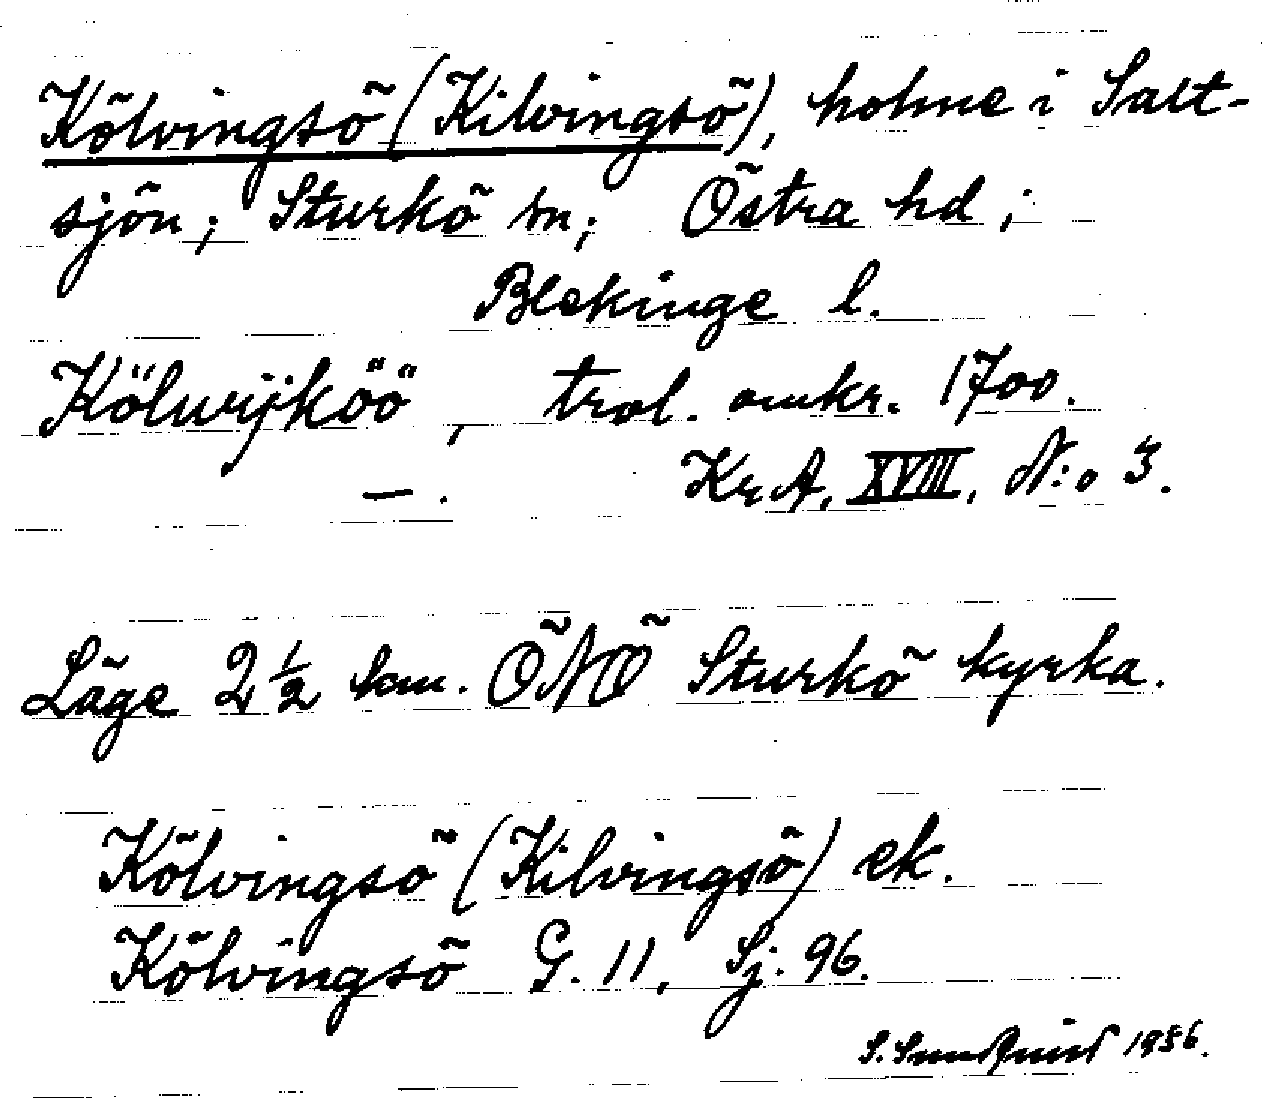 Kölvingsö (Kilvingsö), holme i Salt-
sjön; Sturkö sn; Östra hd;
Blekinge l.
Kölwijköö, trol. omkr. 1700.
— . KrA, XVIII, N:o 3.
Läge 2 ½ km. ÖNÖ Sturkö kyrka.
Kölvingsö (Kilvingsö) ek.
Kölvingsö G. 11, Sj. 96.
S. Sundquist 1956.